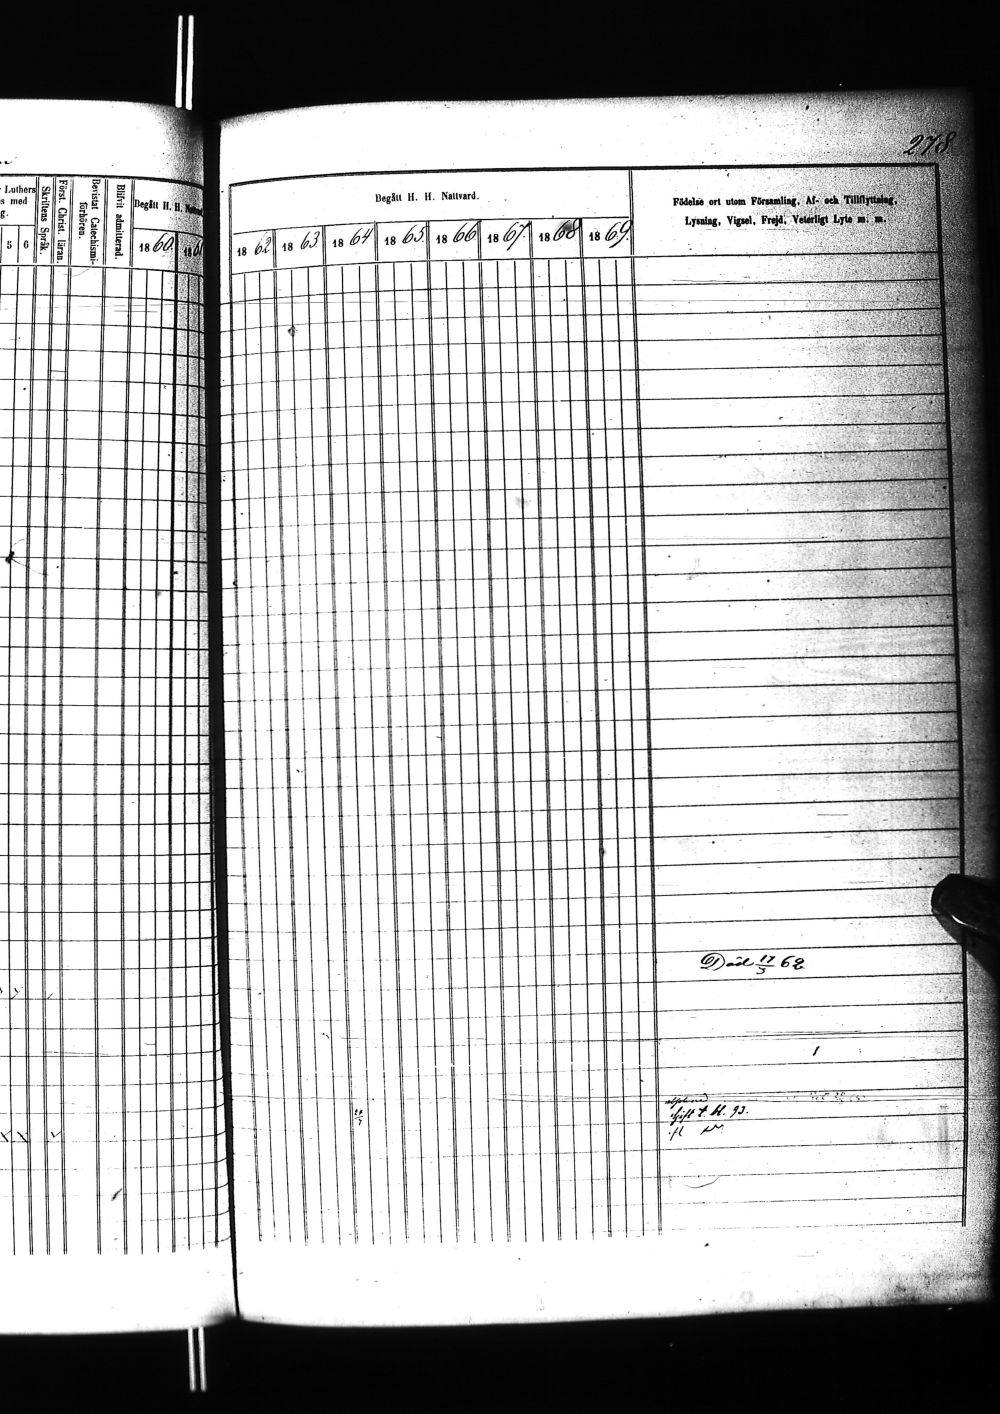 278
Luthers
s med
g.
5 6
Skriftens Språk.
Först. Christ. läran.
Bevistat Catechismi-
förhören.
Blifvit admitterad.
Begått H. H.
1860. 1861
Begått H. H. Nattvard.
1862 1863 1864 1865 1866 1867. 1868 1869.
Födelse ort utom Församling, Af- och Tillflyttning,
Lysning, Vigsel, Frejd, Veterligt Lyte m. m.
Död 17/5 62
gift t. bl. 93.